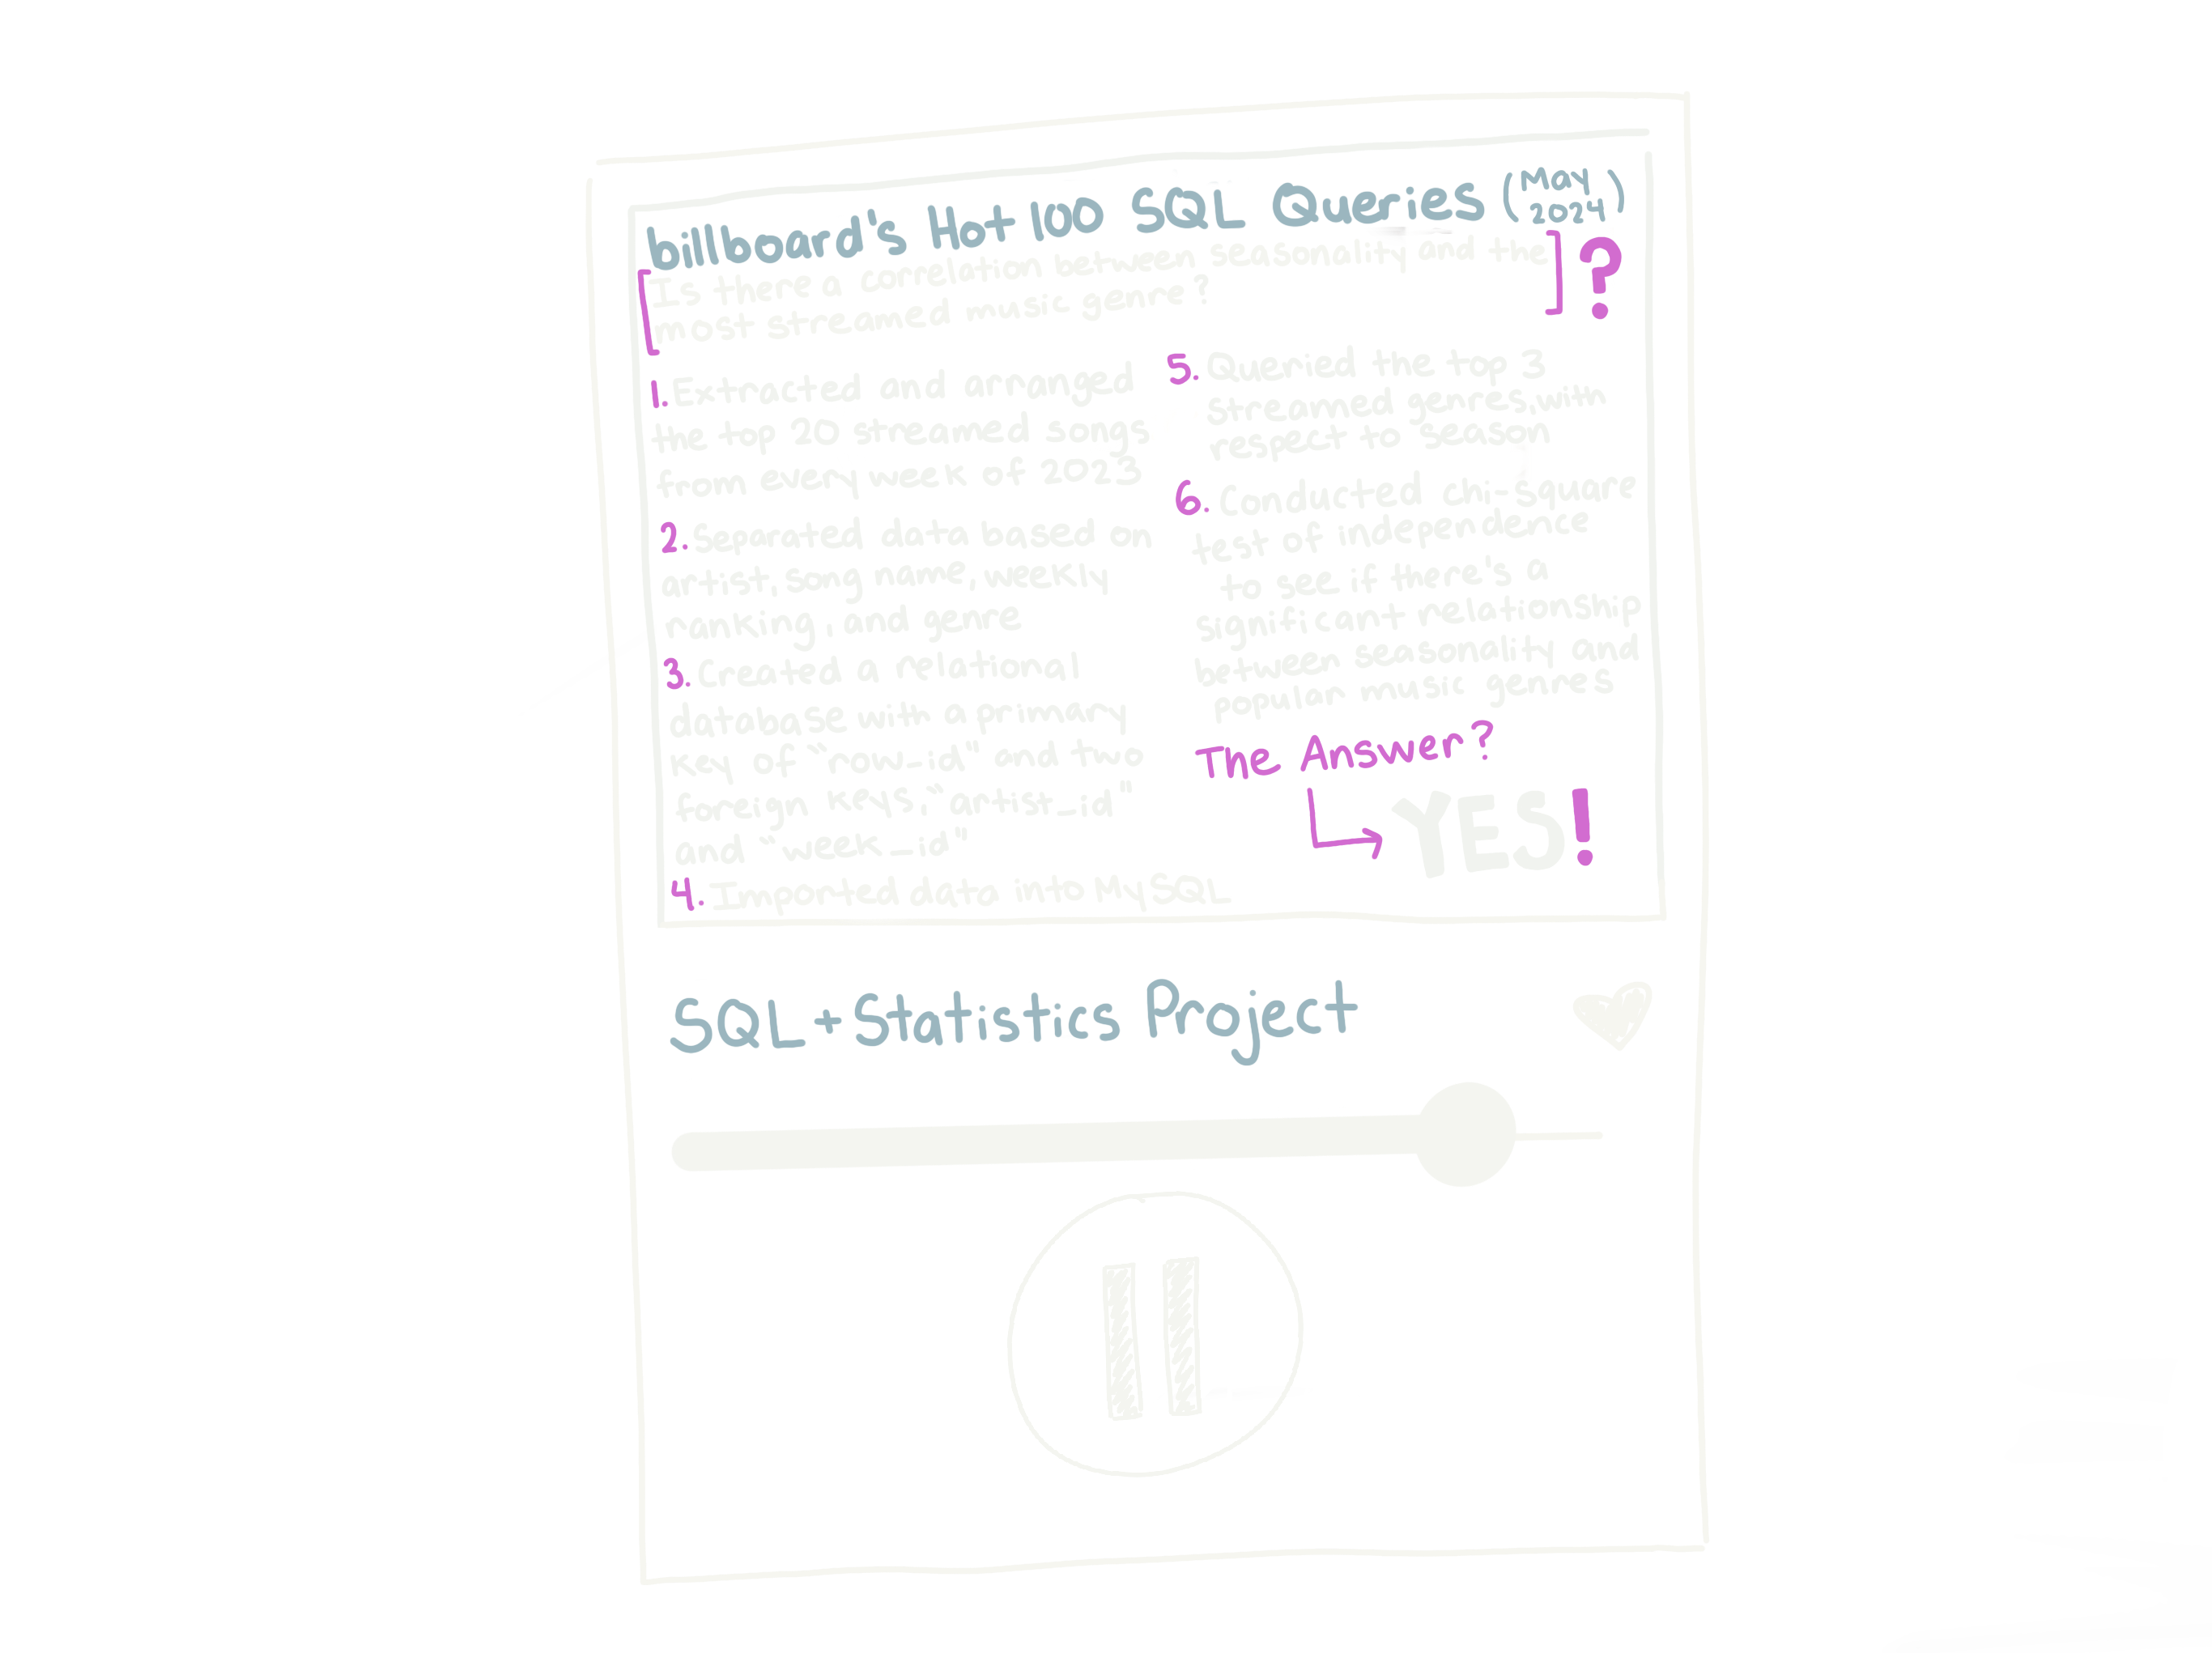 billboard's Hot 100 SQL Queries (May 2024)
[Is there a correlation between seasonality and the
most streamed music genre?] ?
1. Extracted and arranged
the top 20 streamed songs
from every week of 2023
2. Separated data based on
artist, song name, weekly
ranking, and genre
3. Created a relational
database with a primary
key of "row_id" and two
foreign keys: "artist_id"
and "week_id"
4. Imported data into MySQL
5. Queried the top 3
streamed genres, with
respect to season
6. Conducted chi-square
test of independence
to see if there's a
significant relationship
between seasonality and
popular music genres
The Answer?
YES!
SQL + Statistics Project